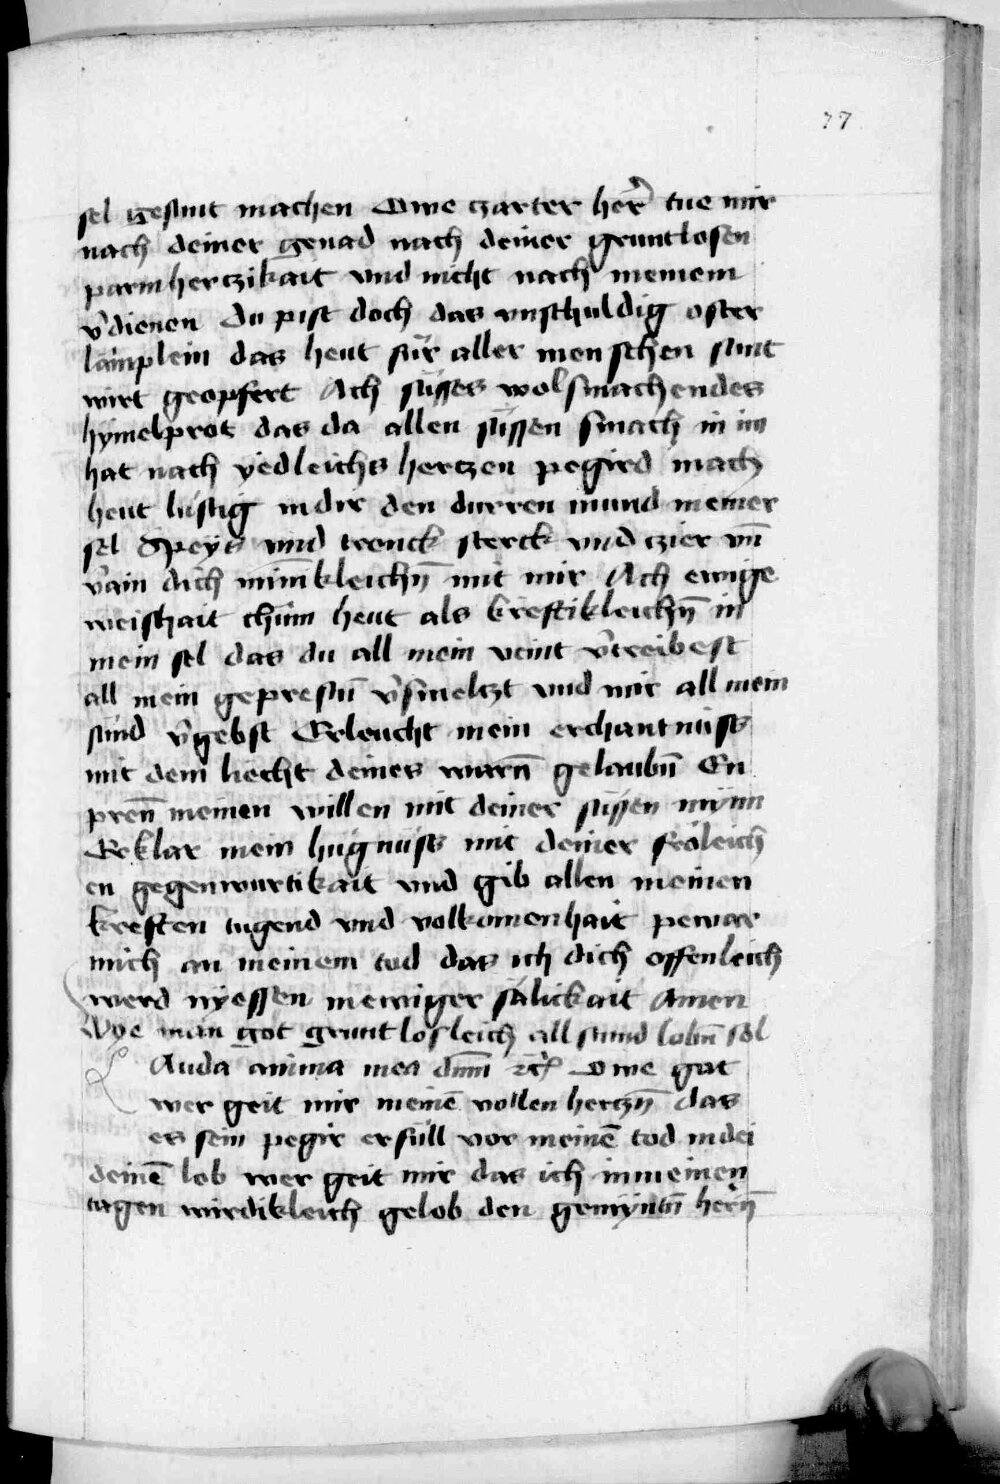 77
sel gesunt machen Owe czarter herr̄ tue mir
nach deiner genad nach deiner gruntlosen
parmherczikait vnd nicht nach meinem
v̄dienen Du pist doch das vnschuldig oster
lämplein das heut für aller menschen sunt
wirt geopfert Ach süsses wolsmachendes
hymelprot das da allen süssen smach in im
hat nach yedleichs hertzen pegird mach
heut lustig in dir den durren mund meiner
sel Speys vnd trenck sterck vnd czier vn̄
v̄ain dich minn̄kleichn̄ mit mir Ach ewige
weishait chum heut als kreftikleichn̄ in
mein sel das du all mein veint v̄treibest
all mein geprestn̄ v̄smeltzt vnd mir all mein
sünd v̄gebst Erleucht mein erchantnüss
mit dem liecht deines warn̄ gelaubn̄ En
pren̄ meinen willen mit deiner süssen mynn
Erklar mein hügnüss mit deiner fröleich
en gegenwurtikait vnd gib allen meinen
kreften tugend vnd volkomenhait pewar
mich an meinem tod das ich dich offenleich
werd nyessen in ewiger sälickait Amen
Wye man got gruntlosleich all stund lobn̄ sol
L Auda anima mea dnm̄ etc̄ Owe got
wer geit mir meinē vollen herczn̄ das
es sein pegir erfüll vor meinē tod in dei
deinē lob wer geit mir das ich in meinen
tagen wirdikleich gelob den gemyntn̄ hern̄